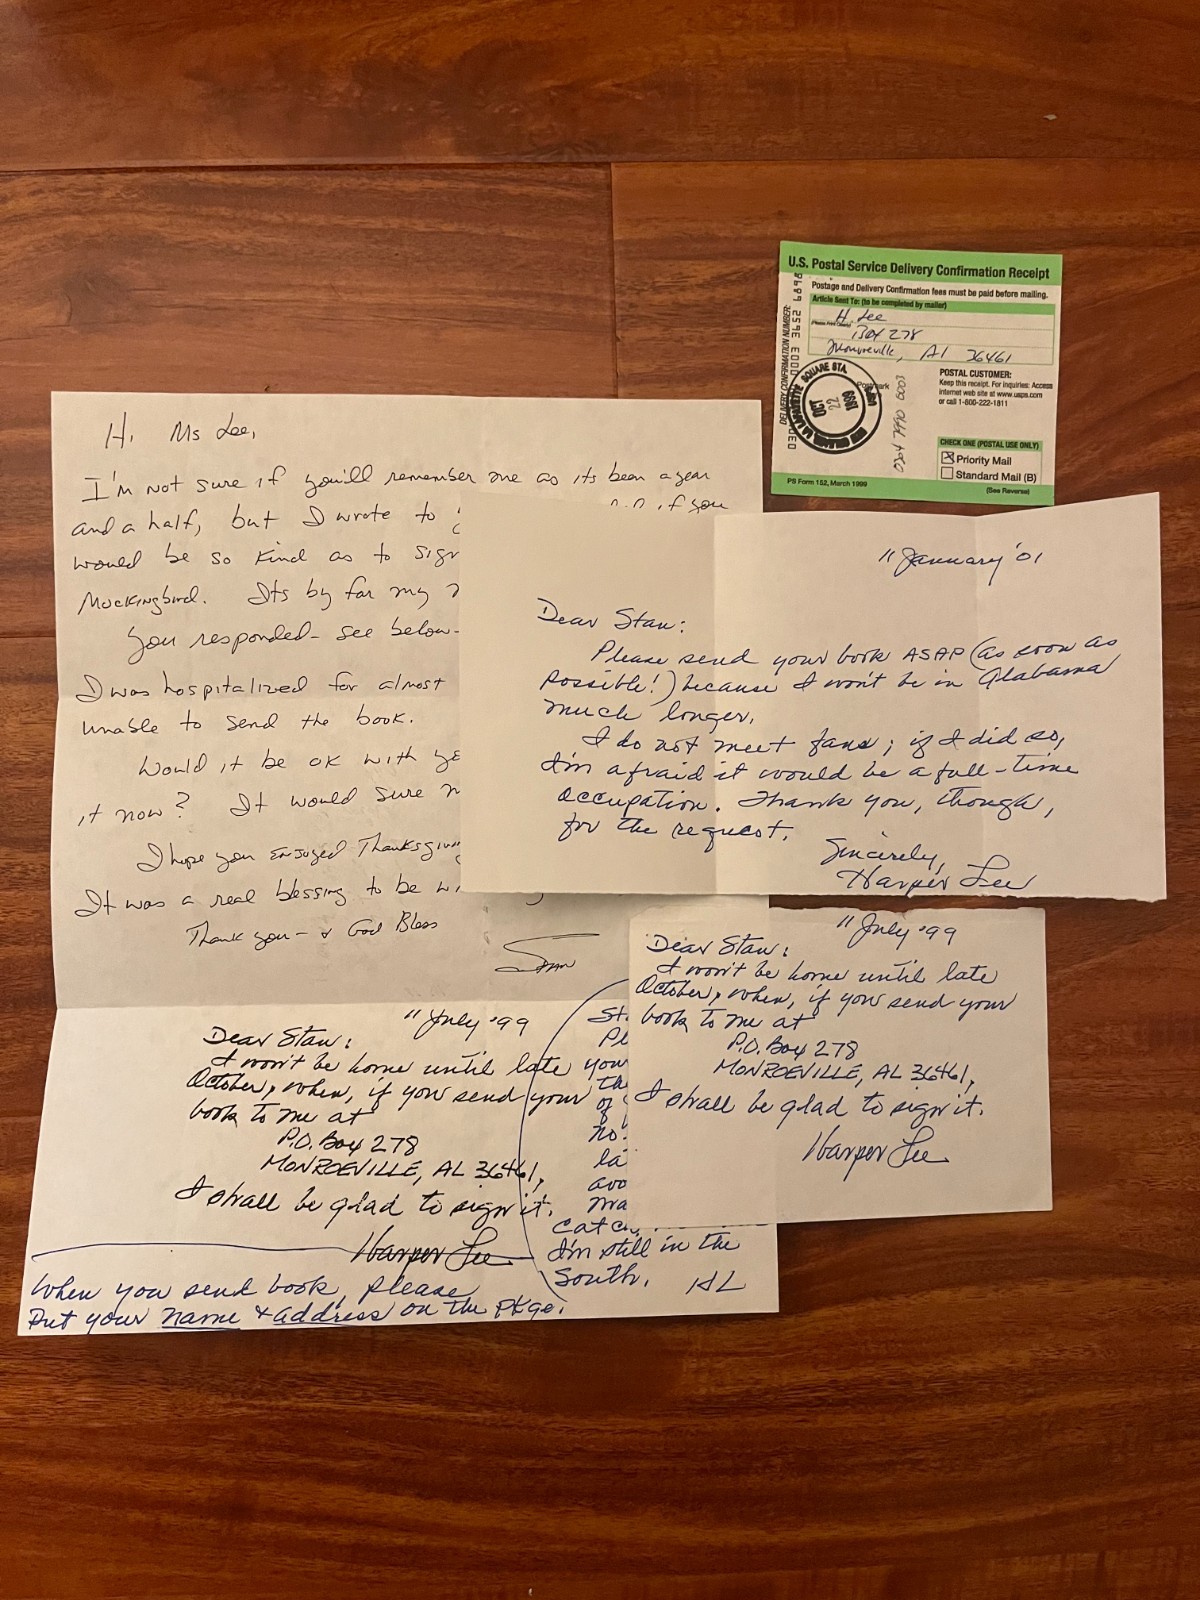 U.S. Postal Service Delivery Confirmation Receipt
Postage and Delivery Confirmation fees must be paid before mailing.
Article Sent To: (to be completed by mailer)
H. Lee
(Please Print Clearly)
Box 278
Monroeville, Al 36461
DELIVERY CONFIRMATION NUMBER:
POSTAL CUSTOMER:
Keep this receipt. For inquiries: Access
internet web site at www.usps.com
or call 1-800-222-1811
Postmark
SQUARE STA.
OCT
22
1999
CHECK ONE (POSTAL USE ONLY)
Priority Mail
Standard Mail (B)
PS Form 152, March 1999
(See Reverse)
Hi Ms Lee,
I'm not sure if you'll remember me as its been a year
and a half, but I wrote to if you
would be so kind as to sign
Mockingbird. Its by far my
You responded - see below -
I was hospitalized for almost
unable to send the book.
Would it be ok with
it now? It would sure
I hope you enjoyed Thanksgiving
It was a real blessing to be
Thank you - & God Bless
Stan
11 January '01
Dear Stan:
Please send your book ASAP (as soon as
possible!) because I won't be in Alabama
much longer.
I do not meet fans; if I did so,
I'm afraid it would be a full-time
occupation. Thank you, though,
for the request.
Sincerely,
Harper Lee
11 July '99
Dear Stan:
I won't be home until late
October, when, if you send your
book to me at
P.O. Box 278
MONROEVILLE, AL 36461,
I shall be glad to sign it.
Harper Lee
11 July '99
Dear Stan:
I won't be home until late
October, when, if you send your
book to me at
P.O. Box 278
MONROEVILLE, AL 36461,
I shall be glad to sign it.
Harper Lee
When you send book, please
put your name & address on the pkge.
I'm still in the
South. HL